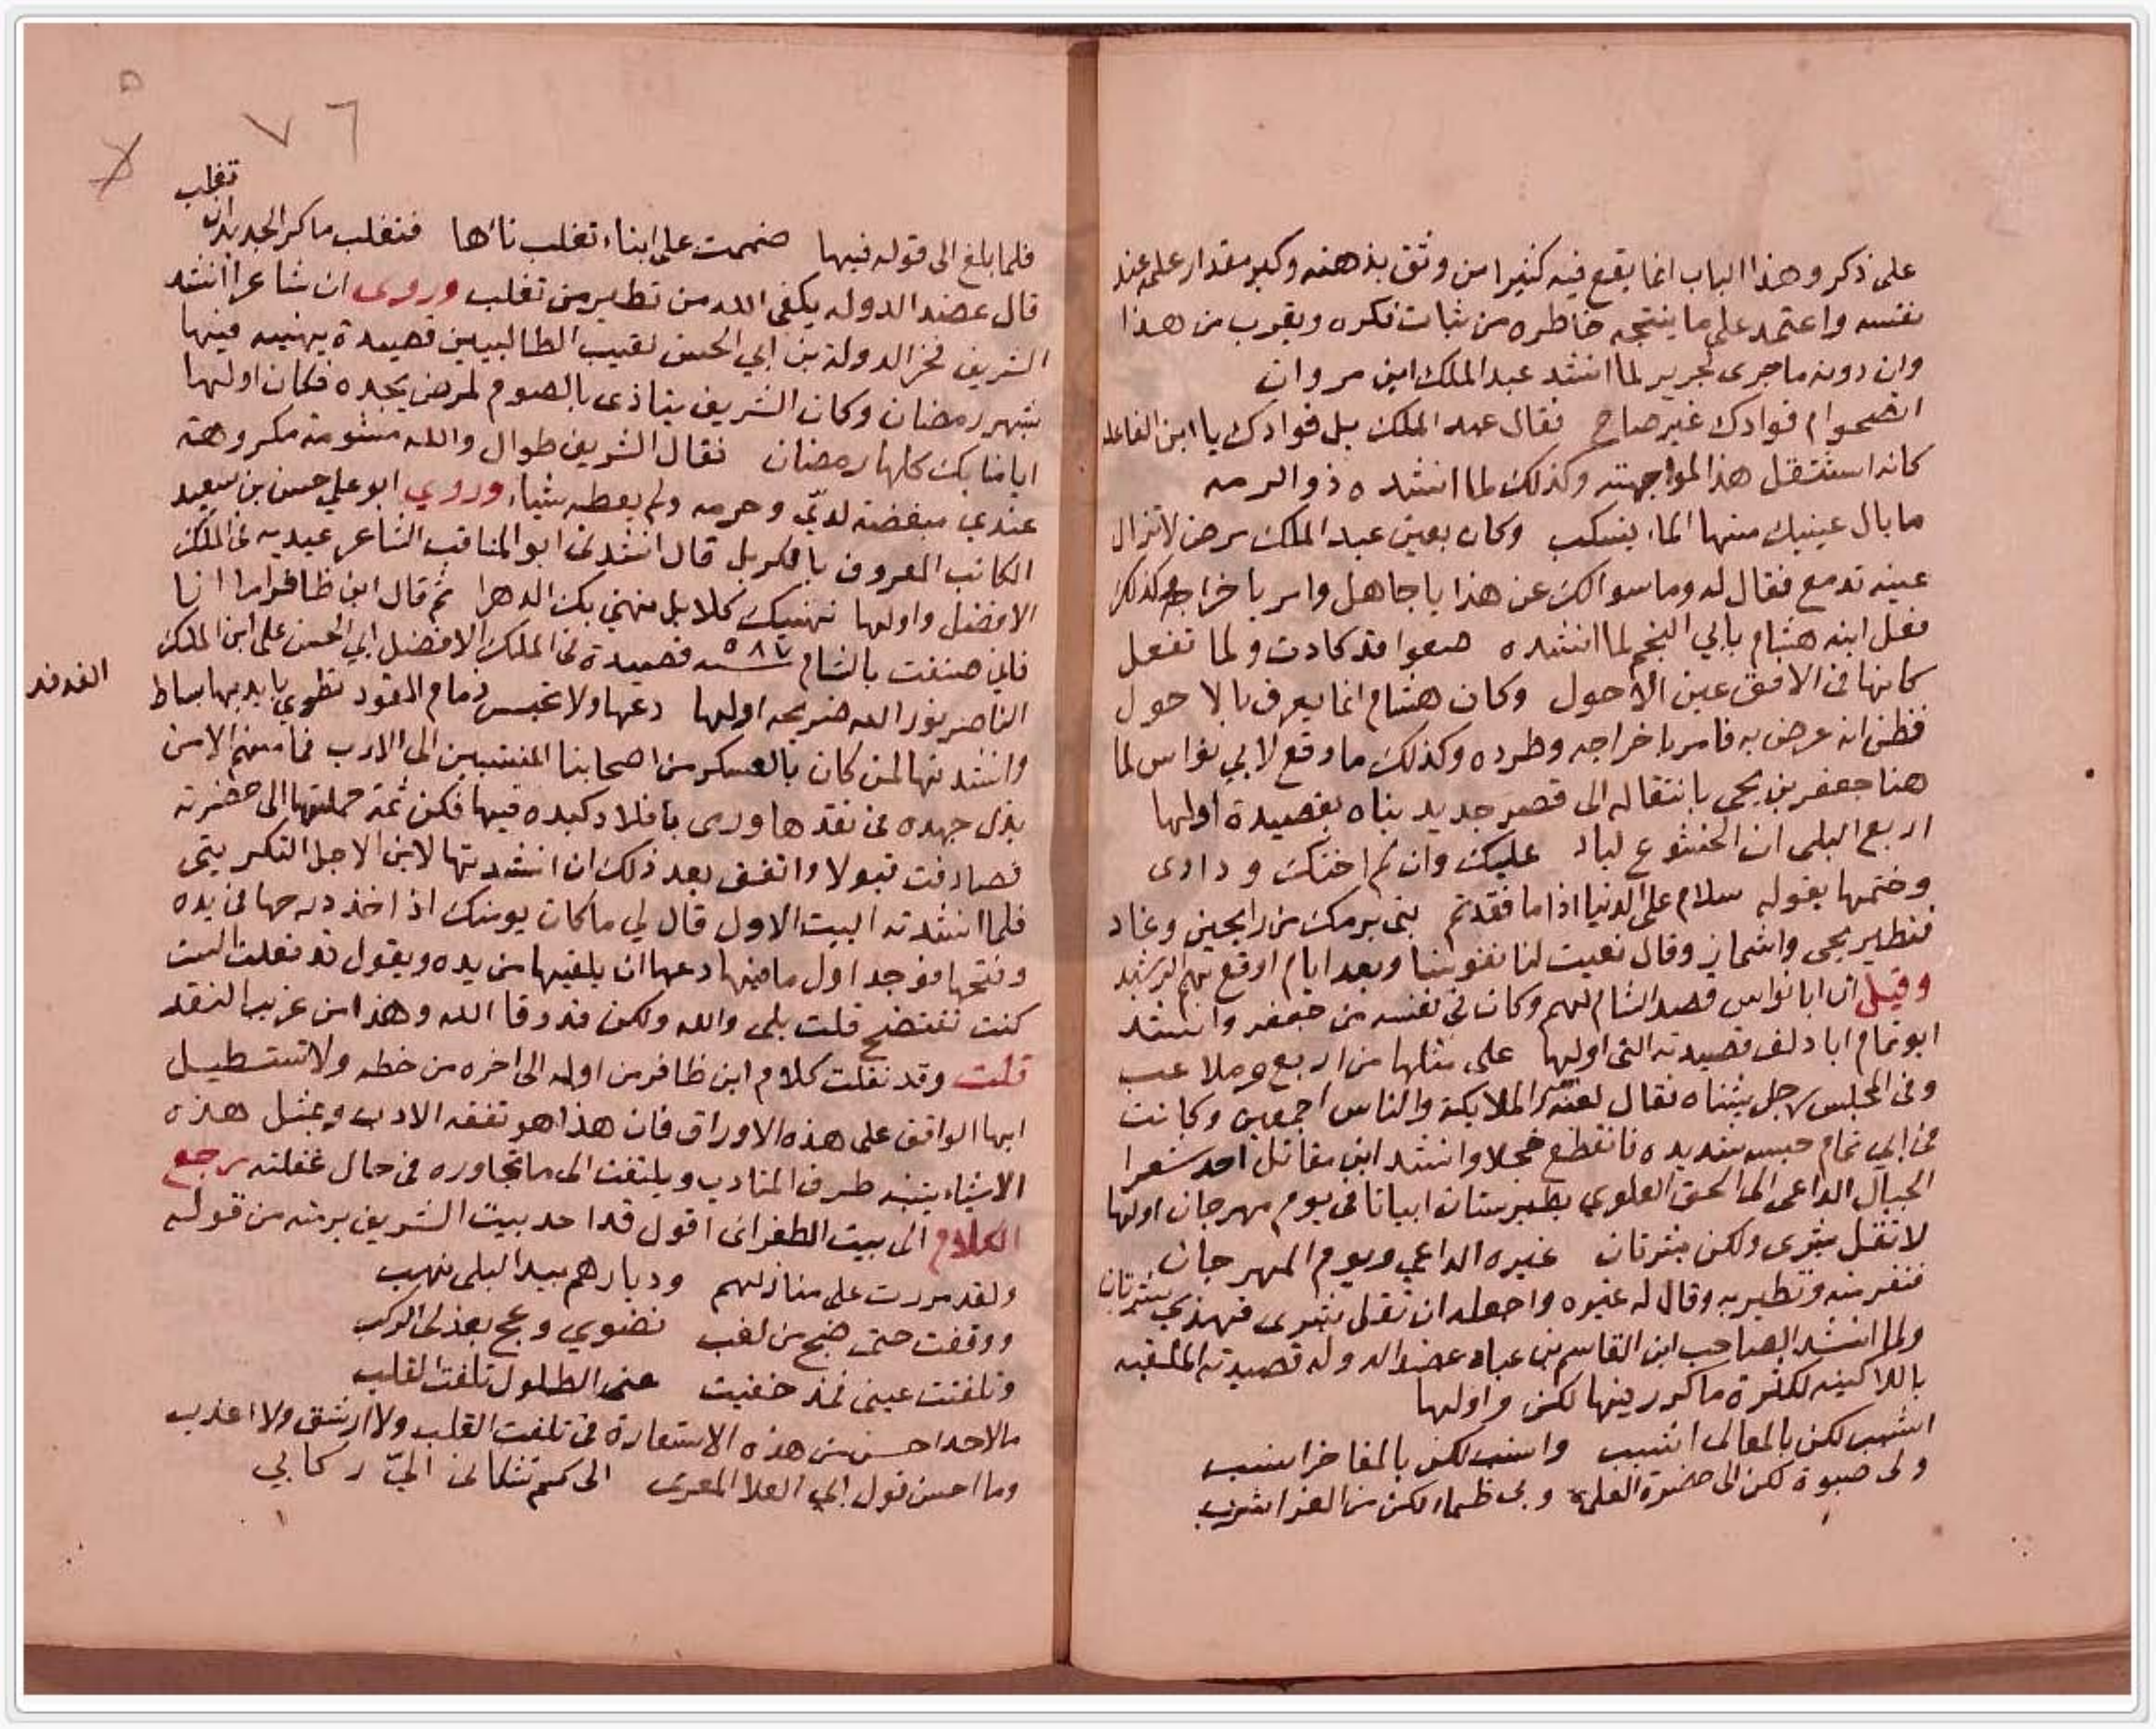 على ذكر وهذا الباب انما يقع فيه كثيرا من وثق بذهنه وكبر مقدار علمه عند
نفسه واعتمد على ما ينتجه خاطره من بنات فكره ويقرب من هذا
وان دونه ما جرى لجرير لما انشد عبد الملك ابن مروان
اتصحوا ام فوادك غير صاح فقال عبد الملك بل فوادك يا ابن الفاعله
كانه استثقل هذا لمواجهته وكذلك لما انشده ذو الرمه
ما بال عينيك منها الماء ينسكب وكان بعين عبد الملك مرض لا تزال
عينه تدمع فقال له وما سوالك عن هذا يا جاهل وامر باخراجه وكذلك
فعل ابنه هشام بابي النجم لما انشده صغوا قد كادت ولما تفعل
كانها في الافق عين الاحول وكان هشام انما يعرف بالاحول
فظن انه عرض به فامر باخراجه وطرده وكذلك ما وقع لابي نواس لما
هنا جعفر بن يحي بانتقاله الى قصر جديد بناه بقصيدة اولها
اربع البلى ان الخشوع لباد عليك وان لم اخنك ودادى
وختمها بقوله سلام على الدنيا اذا ما فقدتم بنى برمك من رايحين وغاد
فتطير يحي واشماز وقال نعيت لنا نفوسنا وبعد ايام اوقع بهم الرشيد
وقيل ان ابا نواس قصد الشام لهم وكان في نفسه من جعفر وانشد
ابو تمام ابا دلف قصيدته التى اولها على مثلها من اربع وملاعب
وفى المجلس رجل يشناه فقال لعنة الملايكة والناس اجمعين وكانت
في ابي تمام حبسه شديده فانقطع خجلا وانشد ابن مقاتل احد شعرا
الجبال الداعى الى الحق العلوي بطبرستان ابياتا في يوم مهرجان اولها
لا تقل بشرى ولكن بشرتان غيره الداعي ويوم المهرجان
فنفر منه وتطير به وقال له غيره واجعله ان تقل بشرى فهذي بشرتان
ولما انشد الصاحب ابن القاسم بن عباد عضد الدوله قصيدته الملقبه
باللاكنيه لكثرة ما كرر فيها لكن واولها
اشبب لكن بالمعالى اشبب وانسب لكن بالمفاخر انسب
ولى صبوة لكن الى حضرة العلى وبي ظماء لكن من العز اشرب
٧٦
تغلب
فلما بلغ الى قوله فيها ضممت على ابناء تغلب تائها فتغلب ما كر الجديدان
قال عضد الدوله يكفى الله من تطير من تغلب وروى ان شاعرا انشد
الشريف فخر الدولة بن ابي الحسن نقيب الطالبيين قصيدة يهنيه فيها
بشهر رمضان وكان الشريف يتاذى بالصوم لمرض يجده فكان اولها
ايامنا بك كلها رمضان فقال الشريف طوال والله مشومة مكروهة
عندي مبغضة لديّ وحرمه ولم يعطه شياء وروي ابو علي حسن بن سعيد
الكاتب المعروف قال انشدني ابو المناقب الشاعر عيديه في الملك
الافضل واولها نهنيك كلا بل نهني بك الدهرا ثم قال ابن ظافر اما انا
فاني صنفت بالشام سنة ٥٨٧ قصيدة في الملك الافضل ابي الحسن على ابن الملك
الناصر نور الله ضريحه اولها دعها ولا تحبس زمام المقود تطوي بايديها بساط
الفدفد
وانشدتها لمن كان بالعسكر من اصحابنا المنتسبين الى الادب فما منهم الا من
بذل جهده في نقدها ورمى بافلاد كبده فيها فكن ثمة حملتها الى حضرته
فصادفت قبولا واتفق بعد ذلك ان انشدتها لابن الاجل التكريتى
فلما انشدته البيت الاول قال لي ما كان يومنك اذ اخذ درجها في يده
وفتحها فوجد اول ما فيها دعها ان يلقيها من يده ويقول قد فعلت الست
كنت تفتضح قلت بلى والله ولكن قد وقا الله وهذا من غريب النقد
قلت وقد نقلت كلام ابن ظافر من اوله الى اخره من خطه ولا تستطيل
ايها الواقف على هذه الاوراق فان هذا هو تفقه الادب وبمثل هذه
الاشياء ينتبه طرف المتادب ويلتفت الى ما تجاوره في حال غفلته رجع
الكلام الى بيت الطغراى اقول قد اخذ بيت الشريف برمته من قوله
ولقد مررت على منازلهم وديارهم بيد البلى نهب
ووقفت حتى ضج من لغب نضوي وعج بعذلى الركب
وتلفتت عينى فمذ خفيت عنى الطلول تلفت القلب
ما لاحد احسن من هذه الاستعارة في تلفت القلب ولا ارشق ولا اعذب
وما احسن قول ابي العلا المعرى الى كم تشكانى اليّ ركابي